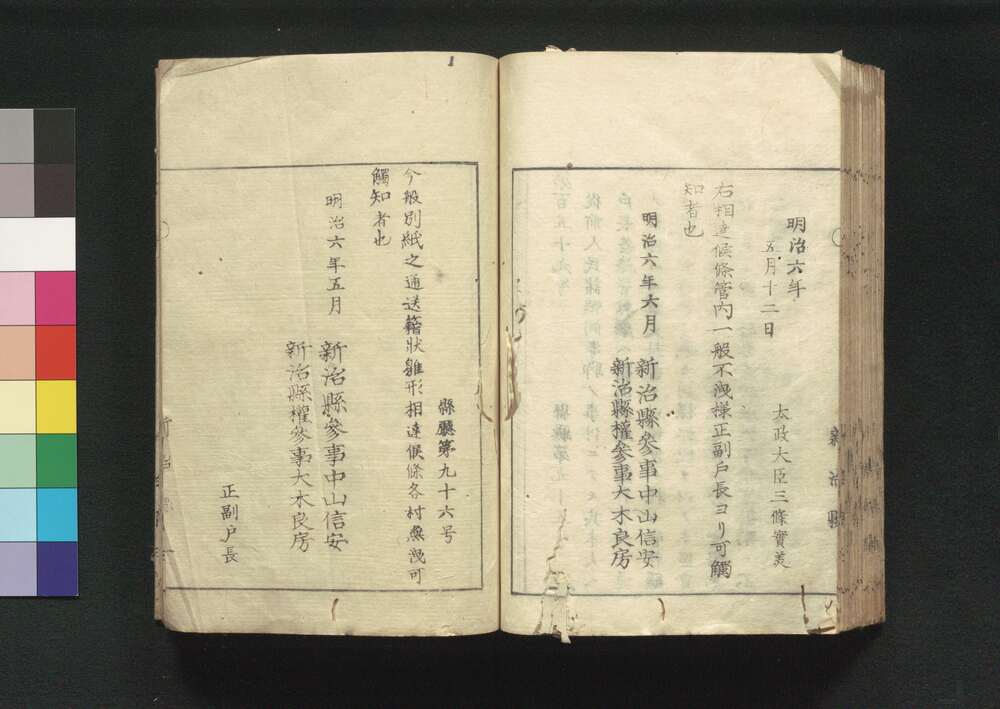 明治六年
五月十二日
太政大臣三條實美
右相達候條管内一般不洩様正副戸長ヨリ可觸
知者也
明治六年六月
新治縣參事中山信安
新治縣權參事大木良房
新治縣
縣廳第九十六号
今般別紙之通送籍状雛形相達候條各村無洩可
觸知者也
明治六年五月
新治縣參事中山信安
新治縣權參事大木良房
正副戸長